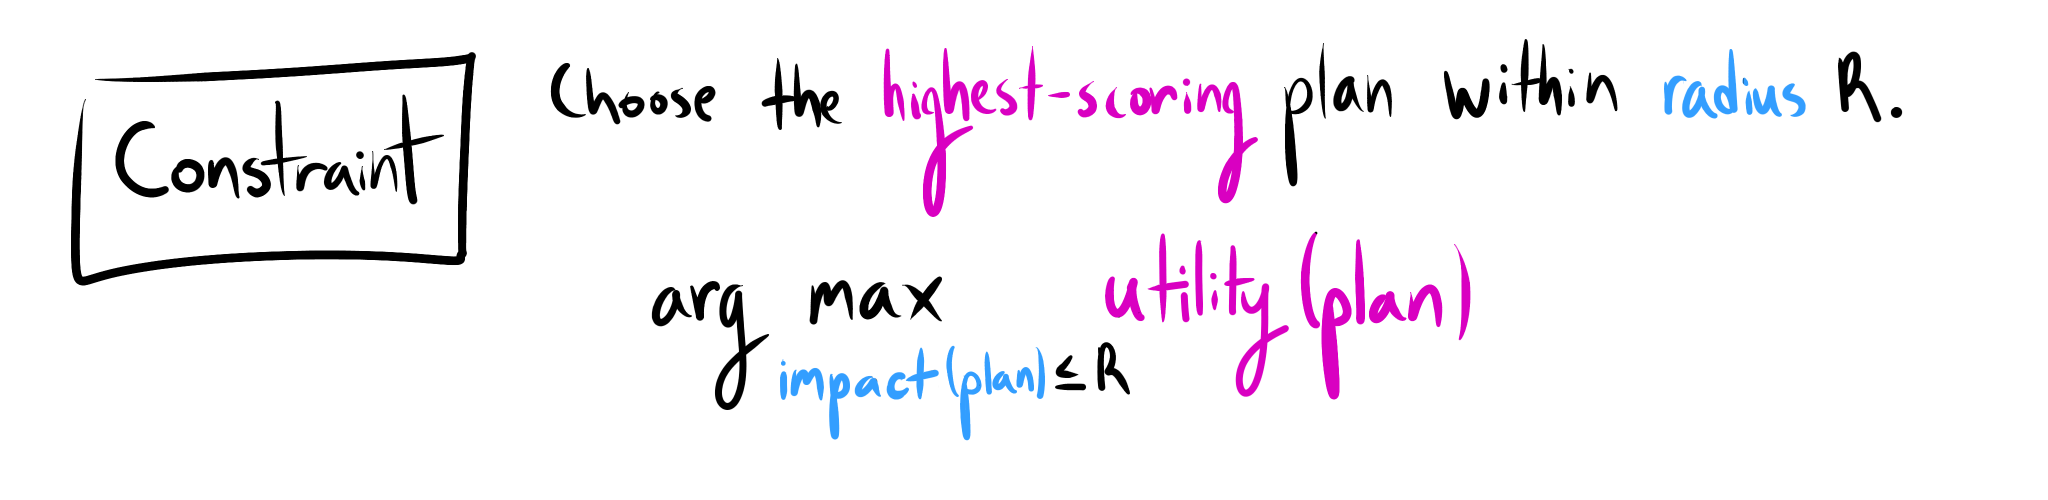 Constraint
Choose the highest-scoring plan within radius R.
arg max utility(plan)
impact(plan)≤R